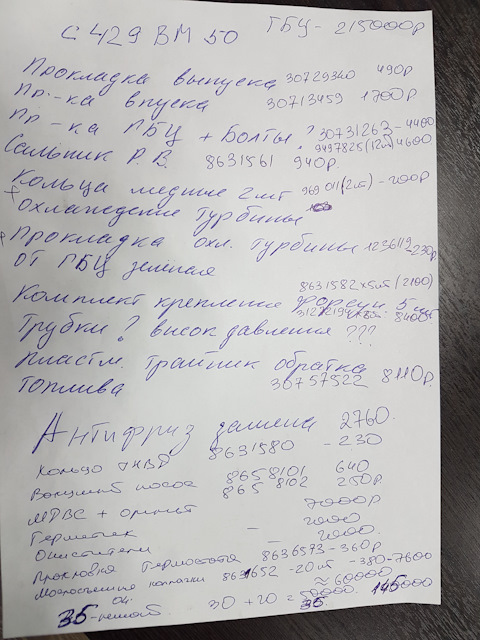 С 429 ВМ 50 ГБЦ - 215000р
Прокладка выпуска 30729340 490р
Пр-ка впуска 30713459 1700р.
Пр-ка ГБЦ + Болты? 30731263 - 4400
9497825 (12шт) 4600
Сальник Р.В. 8631561 940р.
Кольца медные 2шт 969011 (2шт) - 200р
охлаждение турбины
Прокладка охл. турбины - 230р.
от ГБЦ зеленая
8631582 х 5шт (2100)
Комплект крепления форсун. 5
Трубки? высок давления ??? 8400
Пластм. тройник обратка
топлива 30757522 8110р.
Антифриз замена 2760.
Кольцо ТНВД 8631580 - 230
Вакумный насос 8658101 640
865 8102 250р.
МРВС + 7000р
Герметик - 2000
Очистители - 2000.
Прокладка термостата 8636573 - 360р
колпачки 8631652 - 20шт - 380 - 7600
≈ 60000
35 - 30 + 20 = 35. 145000